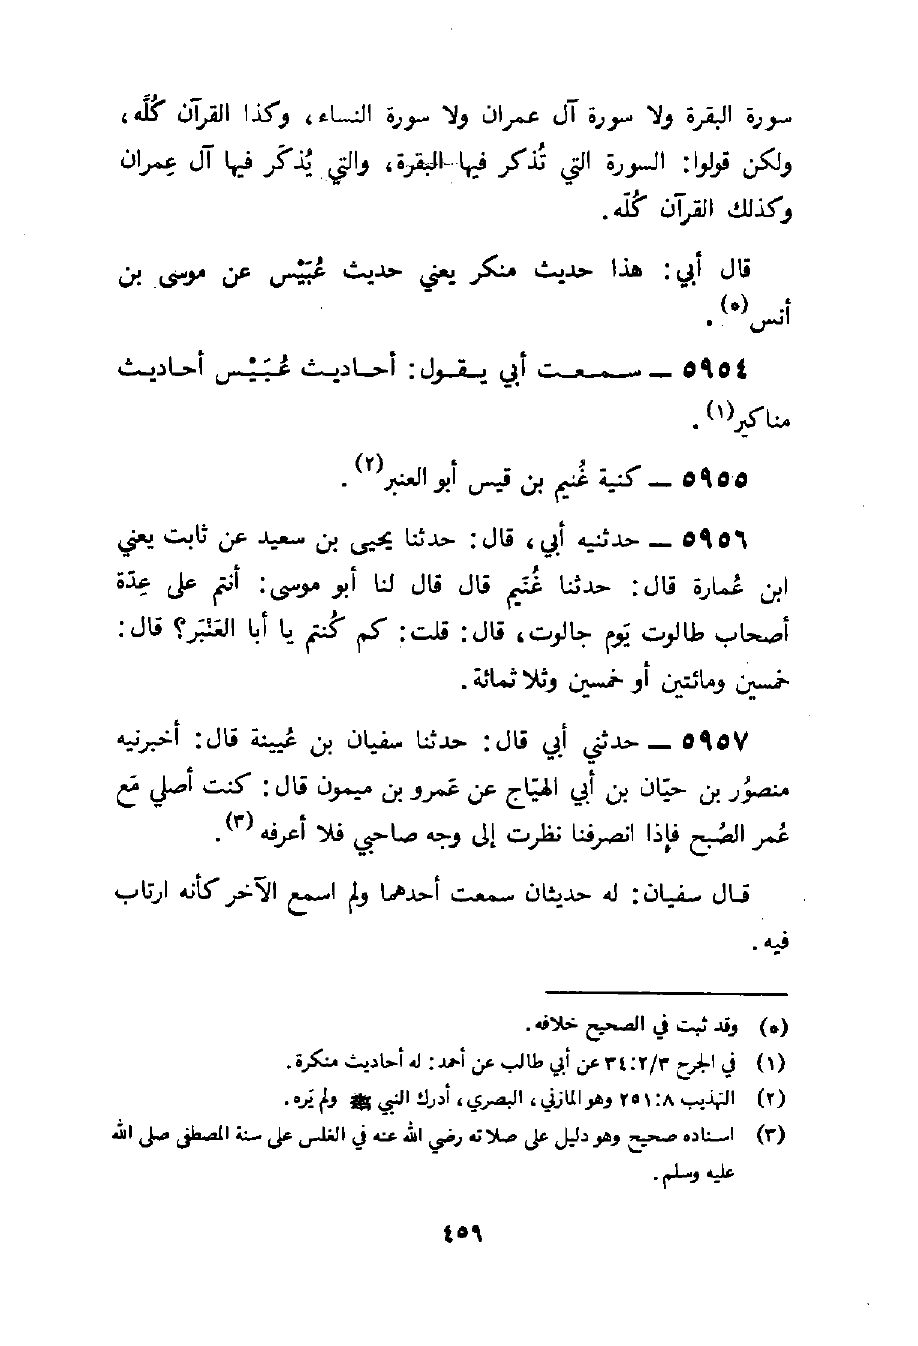 سورة البقرة ولا سورة آل عمران ولا سورة النساء، وكذا القرآن كُلَّه،
ولكن قولوا: السورة التي تُذكر فيها البقرة، والتي يُذكَر فيها آل عِمران
وكذلك القرآن كُلّه.
قال أبي: هذا حديث منكر يعني حديث عُبَيْس عن موسى بن
أنس(*).
٥٩٥٤ – سمعت أبي يقول: أحاديث عُبَيْس أحاديث
مناكير(١).
٥٩٥٥ – كنية غُنيم بن قيس أبو العنبر(٢).
٥٩٥٦ – حدثنيه أبي، قال: حدثنا يحيى بن سعيد عن ثابت يعني
ابن عُمارة قال: حدثنا غُنَيم قال قال لنا أبو موسى: أنتم على عِدّة
أصحاب طالوت يَوم جالوت، قال: قلت: كم كُنتم يا أبا العَنْبَر؟ قال:
خمسين ومائتين أو خمسين وثلاثمائة.
٥٩٥٧ – حدثني أبي قال: حدثنا سفيان بن عُيينة قال: أخبرنيه
منصوُر بن حيّان بن أبي الهيّاج عن عَمرو بن ميمون قال: كنت أصلي مَع
عُمر الصُبح فإذا انصرفنا نظرت إلى وجه صاحبي فلا أعرفه(٣).
قال سفيان: له حديثان سمعت أحدهما ولم اسمع الآخر كأنه ارتاب
فيه.
(*) وقد ثبت في الصحيح خلافه.
(١) في الجرح ٣/٢:٣٤ عن أبي طالب عن أحمد: له أحاديث منكرة.
(٢) التهذيب ٨:٢٥١ وهو المازني، البصري، أدرك النبي ﷺ ولم يَره.
(٣) اسناده صحيح وهو دليل على صلاته رضي الله عنه في الغلس على سنة المصطفى صلى الله
عليه وسلم.
٤٥٩